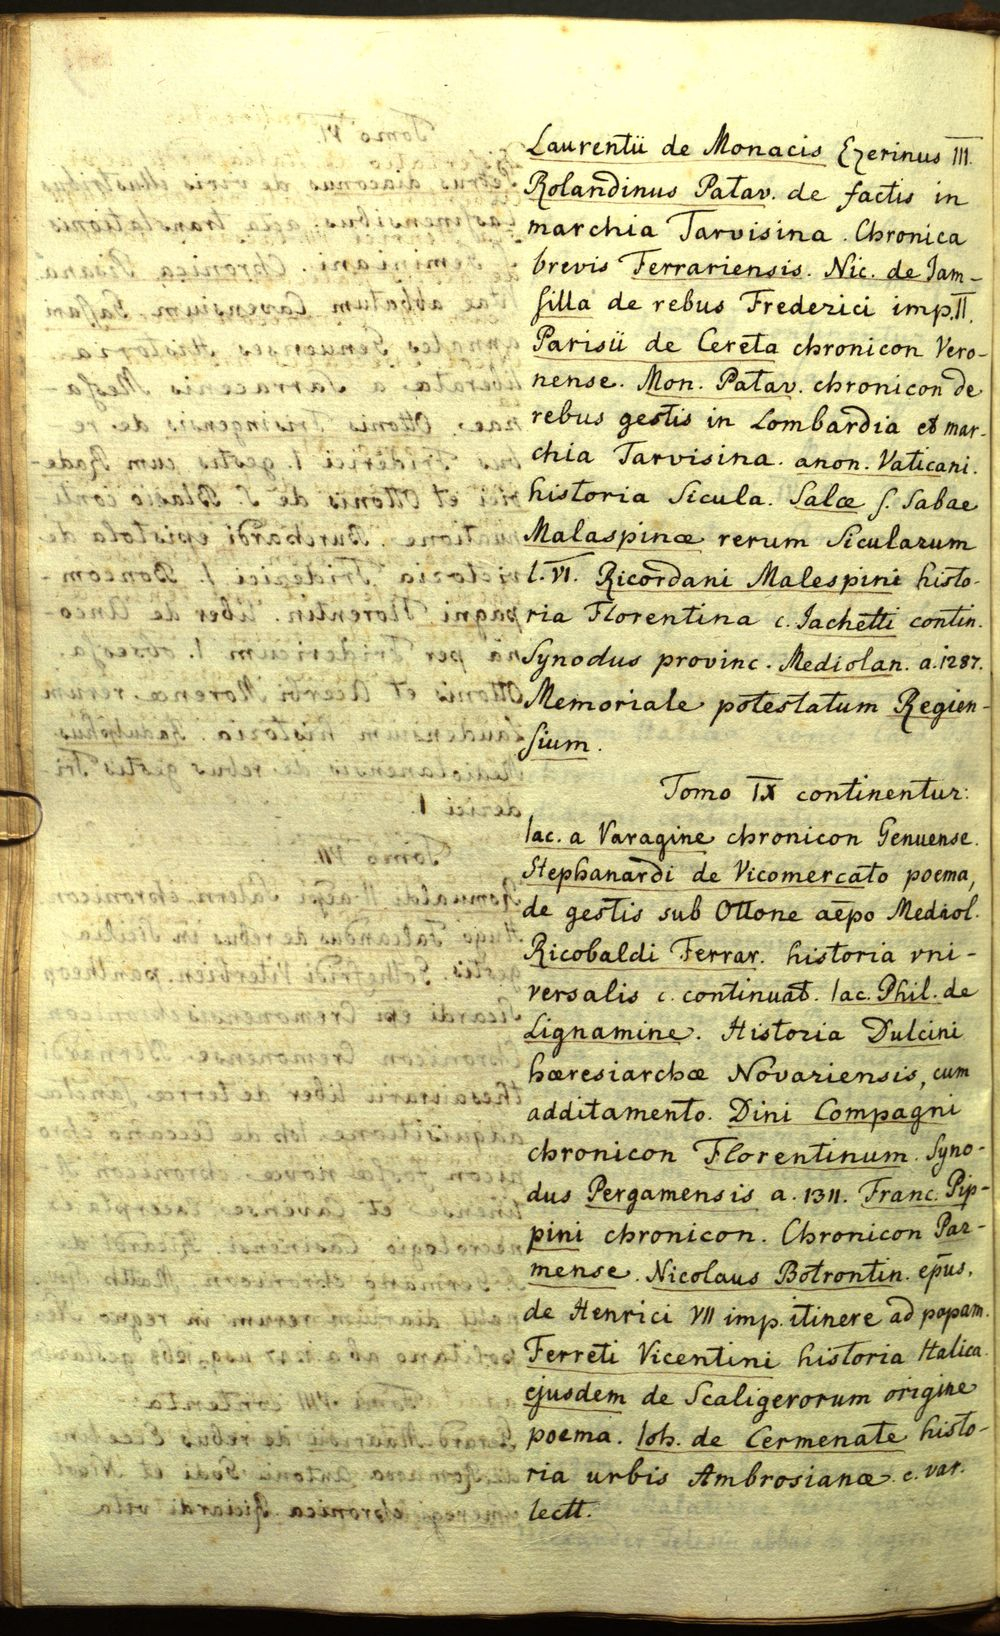 Laurentii de Monacis Ezerinus III.
Rolandinus Patav. de factis in
marchia Tarvisina. Chronica
brevis Ferrariensis. Nic. de Jam-
silla de rebus Frederici imp. II.
Parisii de Cereta chronicon Vero-
nense. Mon. Patav. chronicon de
rebus gestis in Lombardia et mar-
chia Tarvisina. anon. Vaticani.
historia Sicula. Salæ s. Sabae
Malaspinæ rerum Sicularum
l. VI. Ricordani Malespini histo-
ria Florentina c. Jachetti contin.
Synodus provinc. Mediolan. a. 1287.
Memoriale potestatum Regien-
sium.
Tomo IX continentur:
Iac. a Varagine chronicon Genuense.
Stephanardi de Vicomercato poema,
de gestis sub Ottone aepo Mediol.
Ricobaldi Ferrar. historia vni-
versalis c. continuat. Iac. Phil. de
Lignamine. Historia Dulcini
hæresiarchæ Novariensis, cum
additamento. Dini Compagni
chronicon Florentinum. Syno-
dus Pergamensis a. 1311. Franc. Pip-
pini chronicon. Chronicon Par-
mense. Nicolaus Botrontin. epus.
de Henrici VII imp. itinere ad papam.
Ferreti Vicentini historia Italica.
ejusdem de Scaligerorum origine
poema. Ioh. de Cermenate histo-
ria urbis Ambrosianæ c. var.
lectt.